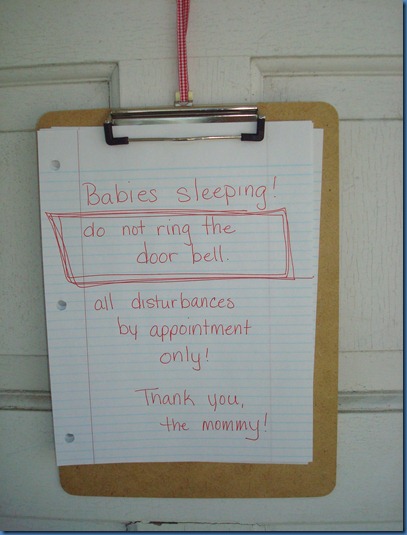 Babies sleeping!
do not ring the
door bell.
all disturbances
by appointment
only!
Thank you,
the mommy!